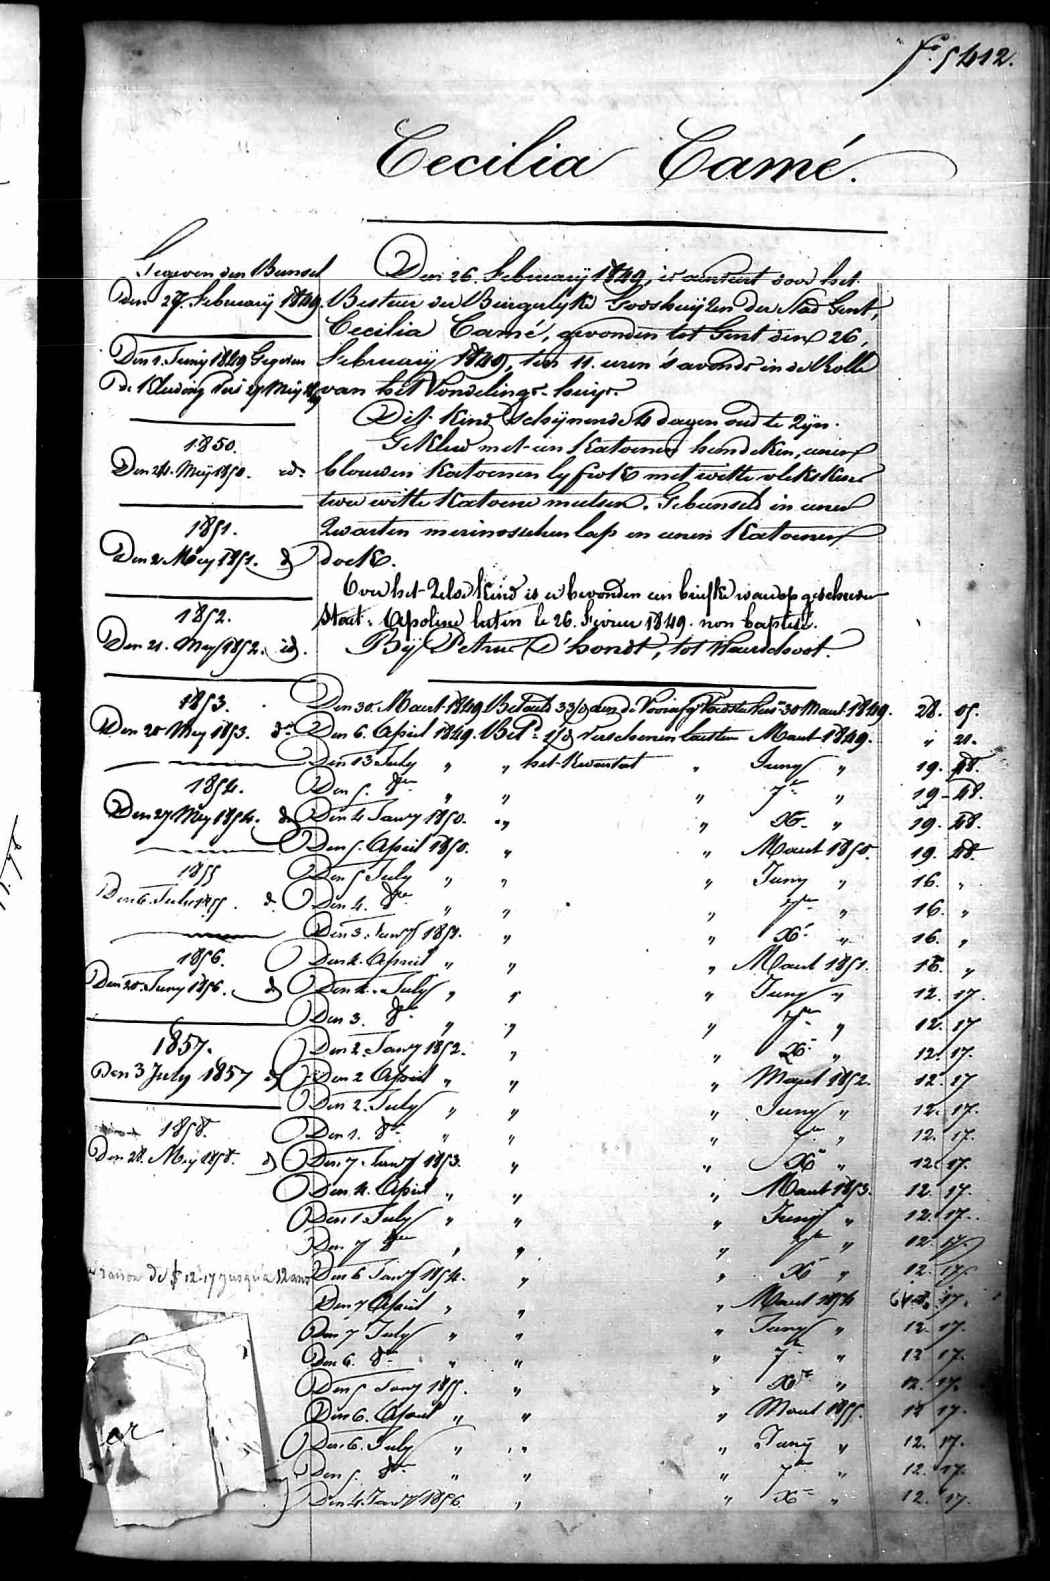 f.° 5412.
Cecilia Camé.
Gegeven den Bunsel
Den 27. February 1849
Den 1. Juny 1849 Gegeven
de Kleeding
1850.
Den 24. Mey 1850. id.
1851.
Den 2. Mey 1851. id
1852.
Den 21. Mey 1852. id.
1853.
Den 20 Mey 1853. d°
1854.
Den 27 Mey 1854. id
1855
Den 6. July 1855. d.
1856.
Den 20. Juny 1856. id
1857.
Den 3 July 1857 id
1858.
Den 28. Mey 1858. id
raison de f 12 17 jusqu'à 12 ans
Den 26. February 1849, is aenveert door het
Bestuer der Burgerlyke Godshuyzen der Stad Gent,
Cecilia Camé, gevonden tot Gent den 26,
February 1849, ten 11. uren 's avonds in de Rolle
van het Vondelings-huys.
Dit kind schynende 4 dagen oud te zyn.
Gekleed met een katoenen hemdeken, eenen
blauwen katoenen lyfrok met witte vlekskens
twee witte katoene mutsen. Gebunseld in eenen
zwarten merinoschen lap en eenen katoenen
doek.
Over het zelve kind is er bevonden een briefke waerop geschreven
Staet: Apoline lutin le 26. Fevrier 1849. non baptisé.
By Petrus D'hondt, tot
Den 30. Maert 1849. Betaeld 30 Maert 1849. 28. 05.
Den 6. April 1849. Bet. verschenen laetsten Maert 1849. " 21.
Den 13 July " " het kwartael " Juny " 19. 48.
Den 5. 8bre " " " 7bre " 19 - 48.
Den 4 Janry 1850. " " Xbre " 19. 48.
Den 5. April 1850. " " Maert 1850. 19. 48.
Den 5 July " " " Juny " 16. "
Den 4. 8bre " " " 7bre " 16. "
Den 3. Janry 1851. " " Xbre " 16. "
Den 4. April " " " Maert 1851. 16. "
Den 4. July " " " Juny " 12. 17.
Den 3. 8bre " " " 7bre " 12. 17
Den 2 Janry 1852. " " Xbre " 12. 17.
Den 2 April " " " Maert 1852. 12. 17
Den 2. July " " " Juny " 12. 17.
Den 1. 8bre " " " 7bre " 12. 17.
Den 7. Janry 1853. " " Xbre " 12. 17.
Den 4. April " " " Maert 1853. 12. 17.
Den 1. July " " " Juny " 12. 17.
Den 7 8bre " " " 7bre " 12. 17.
Den 6 Janry 1854. " " Xbre " 12. 17.
Den 7 April " " " Maert 1854 17.
Den 7 July " " " Juny " 12. 17.
Den 6. 8bre " " " 7bre " 12 17.
Den 5 Janry 1855. " " Xbre " 12. 17.
Den 6. April " " " Maert 1855. 12 17.
Den 6. July " " " Juny " 12. 17.
Den 5. 8bre " " " 7bre " 12. 17.
Den 4. Janry 1856 " " Xbre " 12. 17.